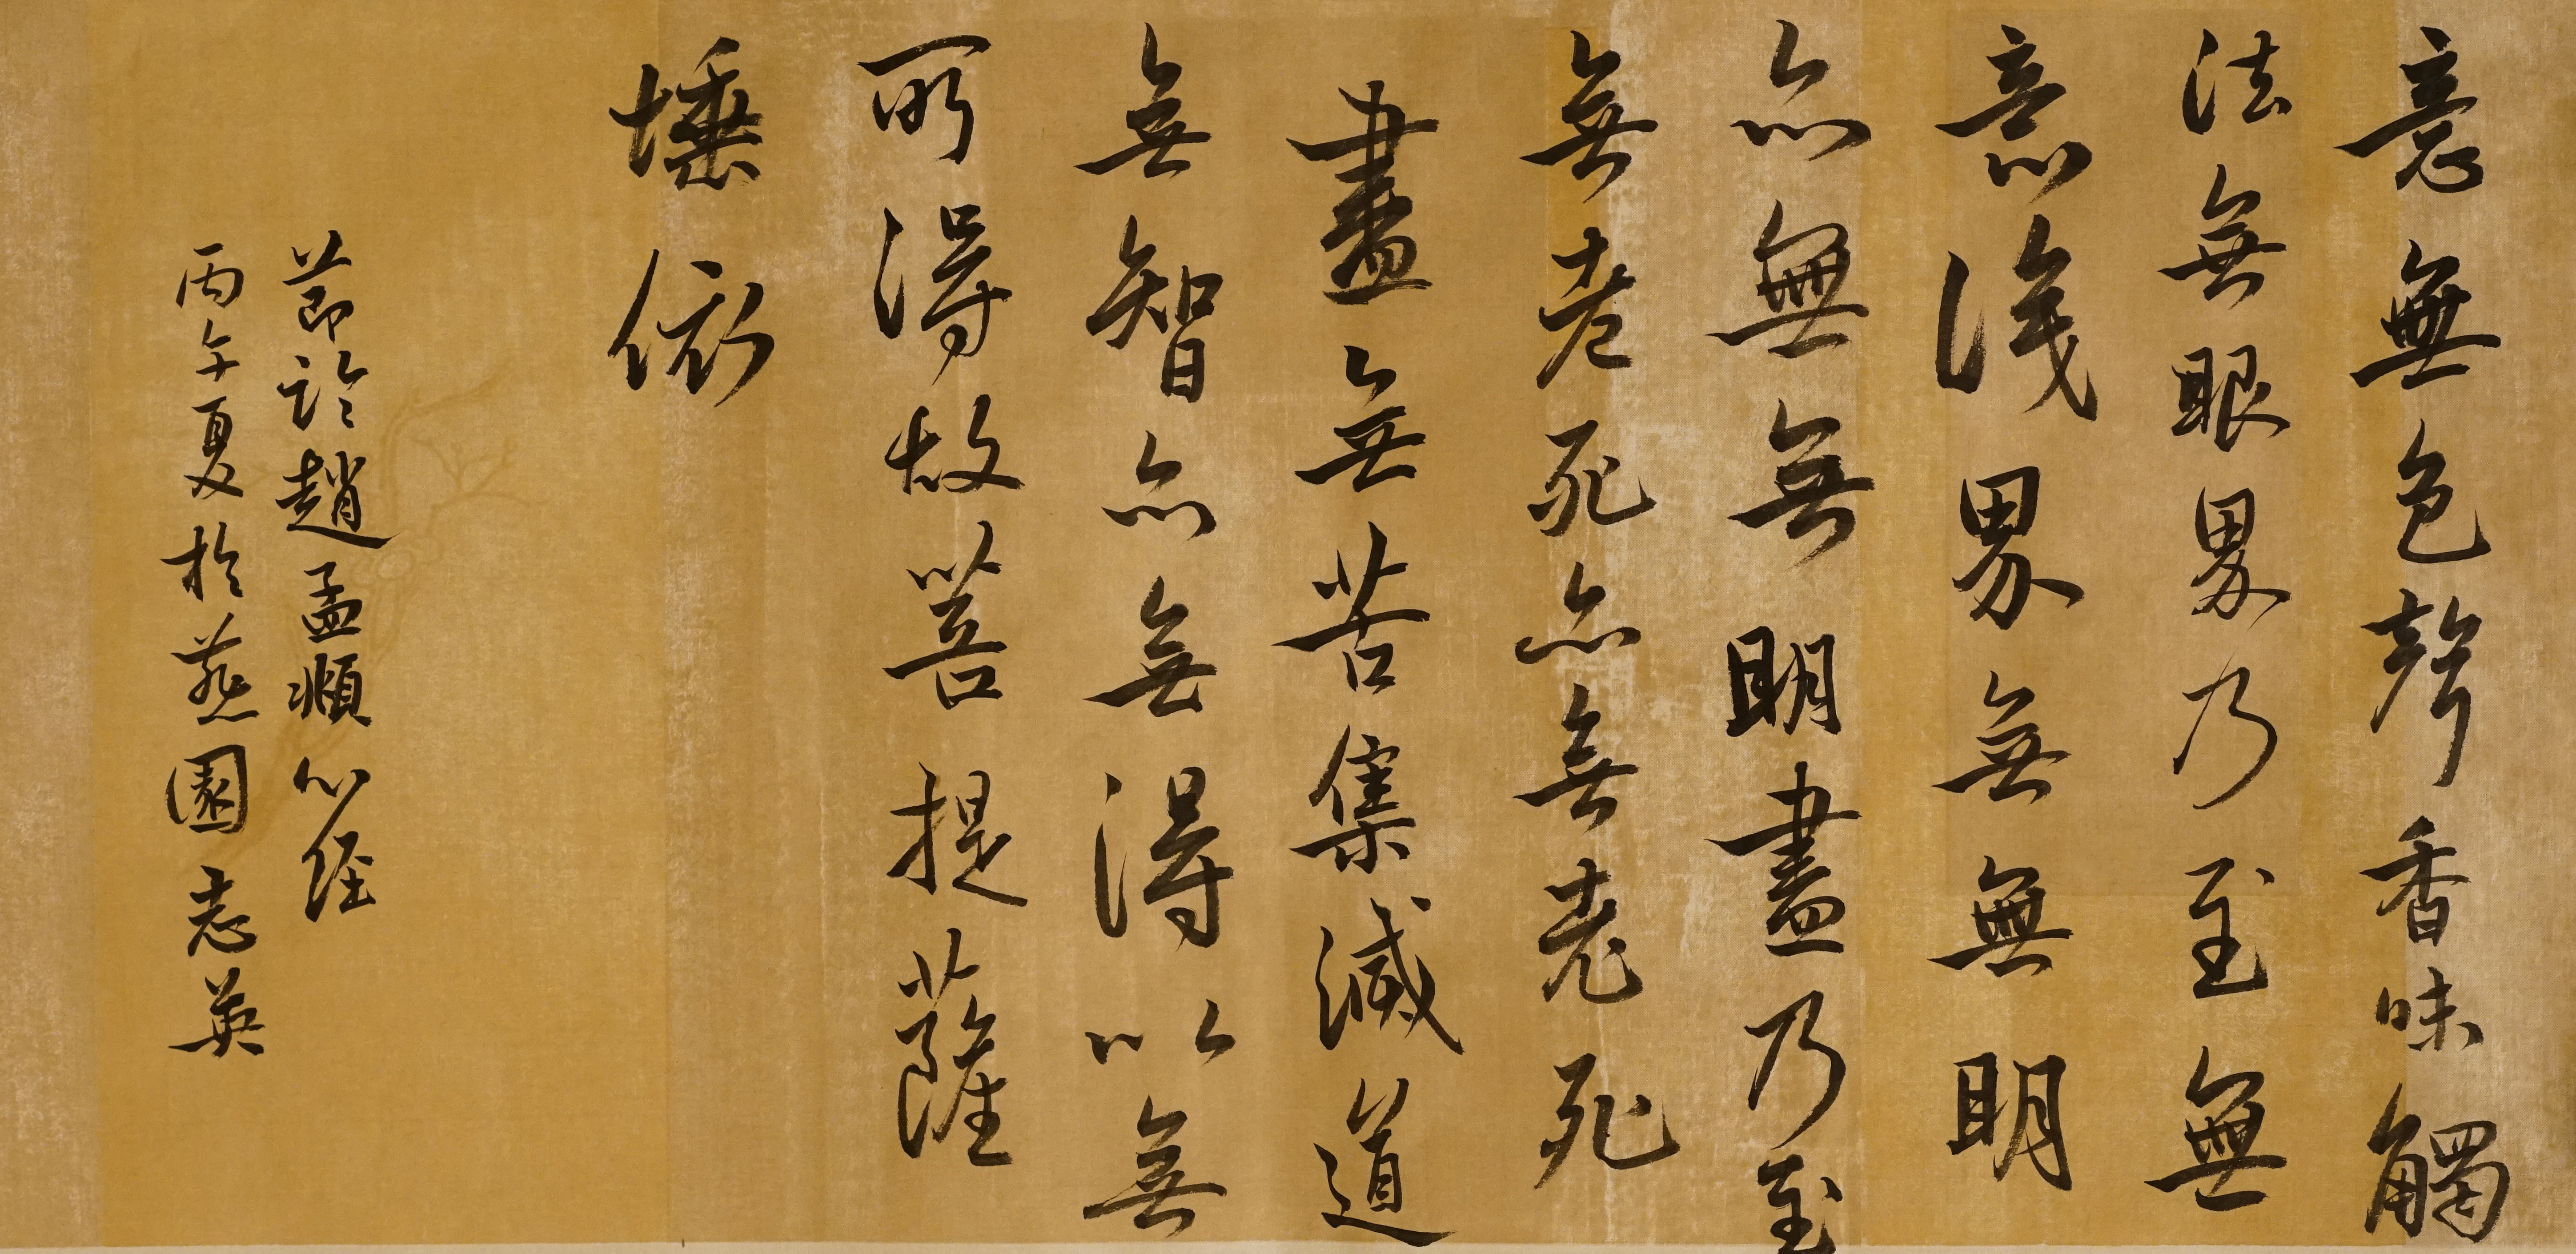 意無色聲香味觸
法無眼界乃至無
意識界無無明
亦無無明盡乃至
無老死亦無老死
盡無苦集滅道
無智亦無得以無
所得故菩提薩
埵依
節臨趙孟頫心経
丙午夏於燕園志英